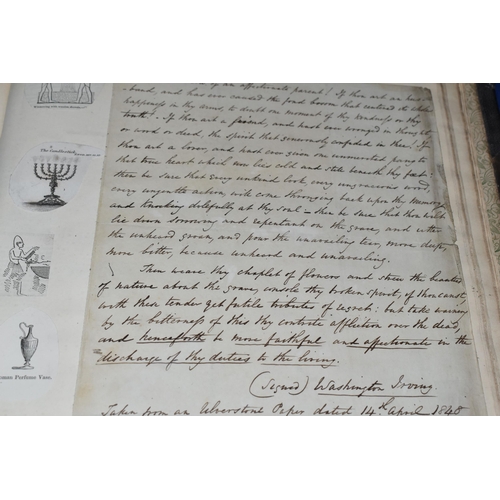 The Candlestick
Roman Perfume Vase.
of an affectionate parent! If thou art an hus-
-band, and hast ever caused the fond bosom that ventured its whole
happiness in thy arms, to doubt one moment of thy kindness or thy
truth! If thou art a friend, and hast ever wronged in thought
or word or deed, the spirit that generously confided in thee! If
thou art a lover, and hast ever given one unmerited pang to
that true heart which now lies cold and still beneath thy feet:-
then be sure that every unkind look, every ungracious word,
every ungentle action, will come thronging back upon thy memory
and knocking dolefully at thy soul - then be sure that thou wilt
lie down sorrowing and repentant on the grave, and utter
the unheard groan, and pour the unavailing tear, more deep,
more bitter, because unheard and unavailing.
Then weave thy chaplet of flowers and strew the beauties
of nature about the grave, console thy broken spirit, if thou canst
with these tender yet futile tributes of regret: but take warning
by the bitterness of this thy contrite affliction over the dead,
and henceforth be more faithful and affectionate in the
discharge of thy duties to the living.
(Signed) Washington Irving.
Taken from an Ulverstone Paper dated 14th April 1848